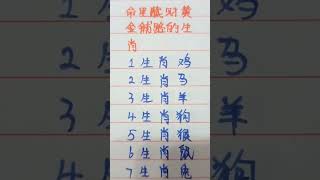 命里藏财黄
金铺路的生
肖
1 生肖 鸡
2 生肖 马
3 生肖 羊
4 生肖 狗
5 生肖 猴
6 生肖 鼠
7 生肖 兔